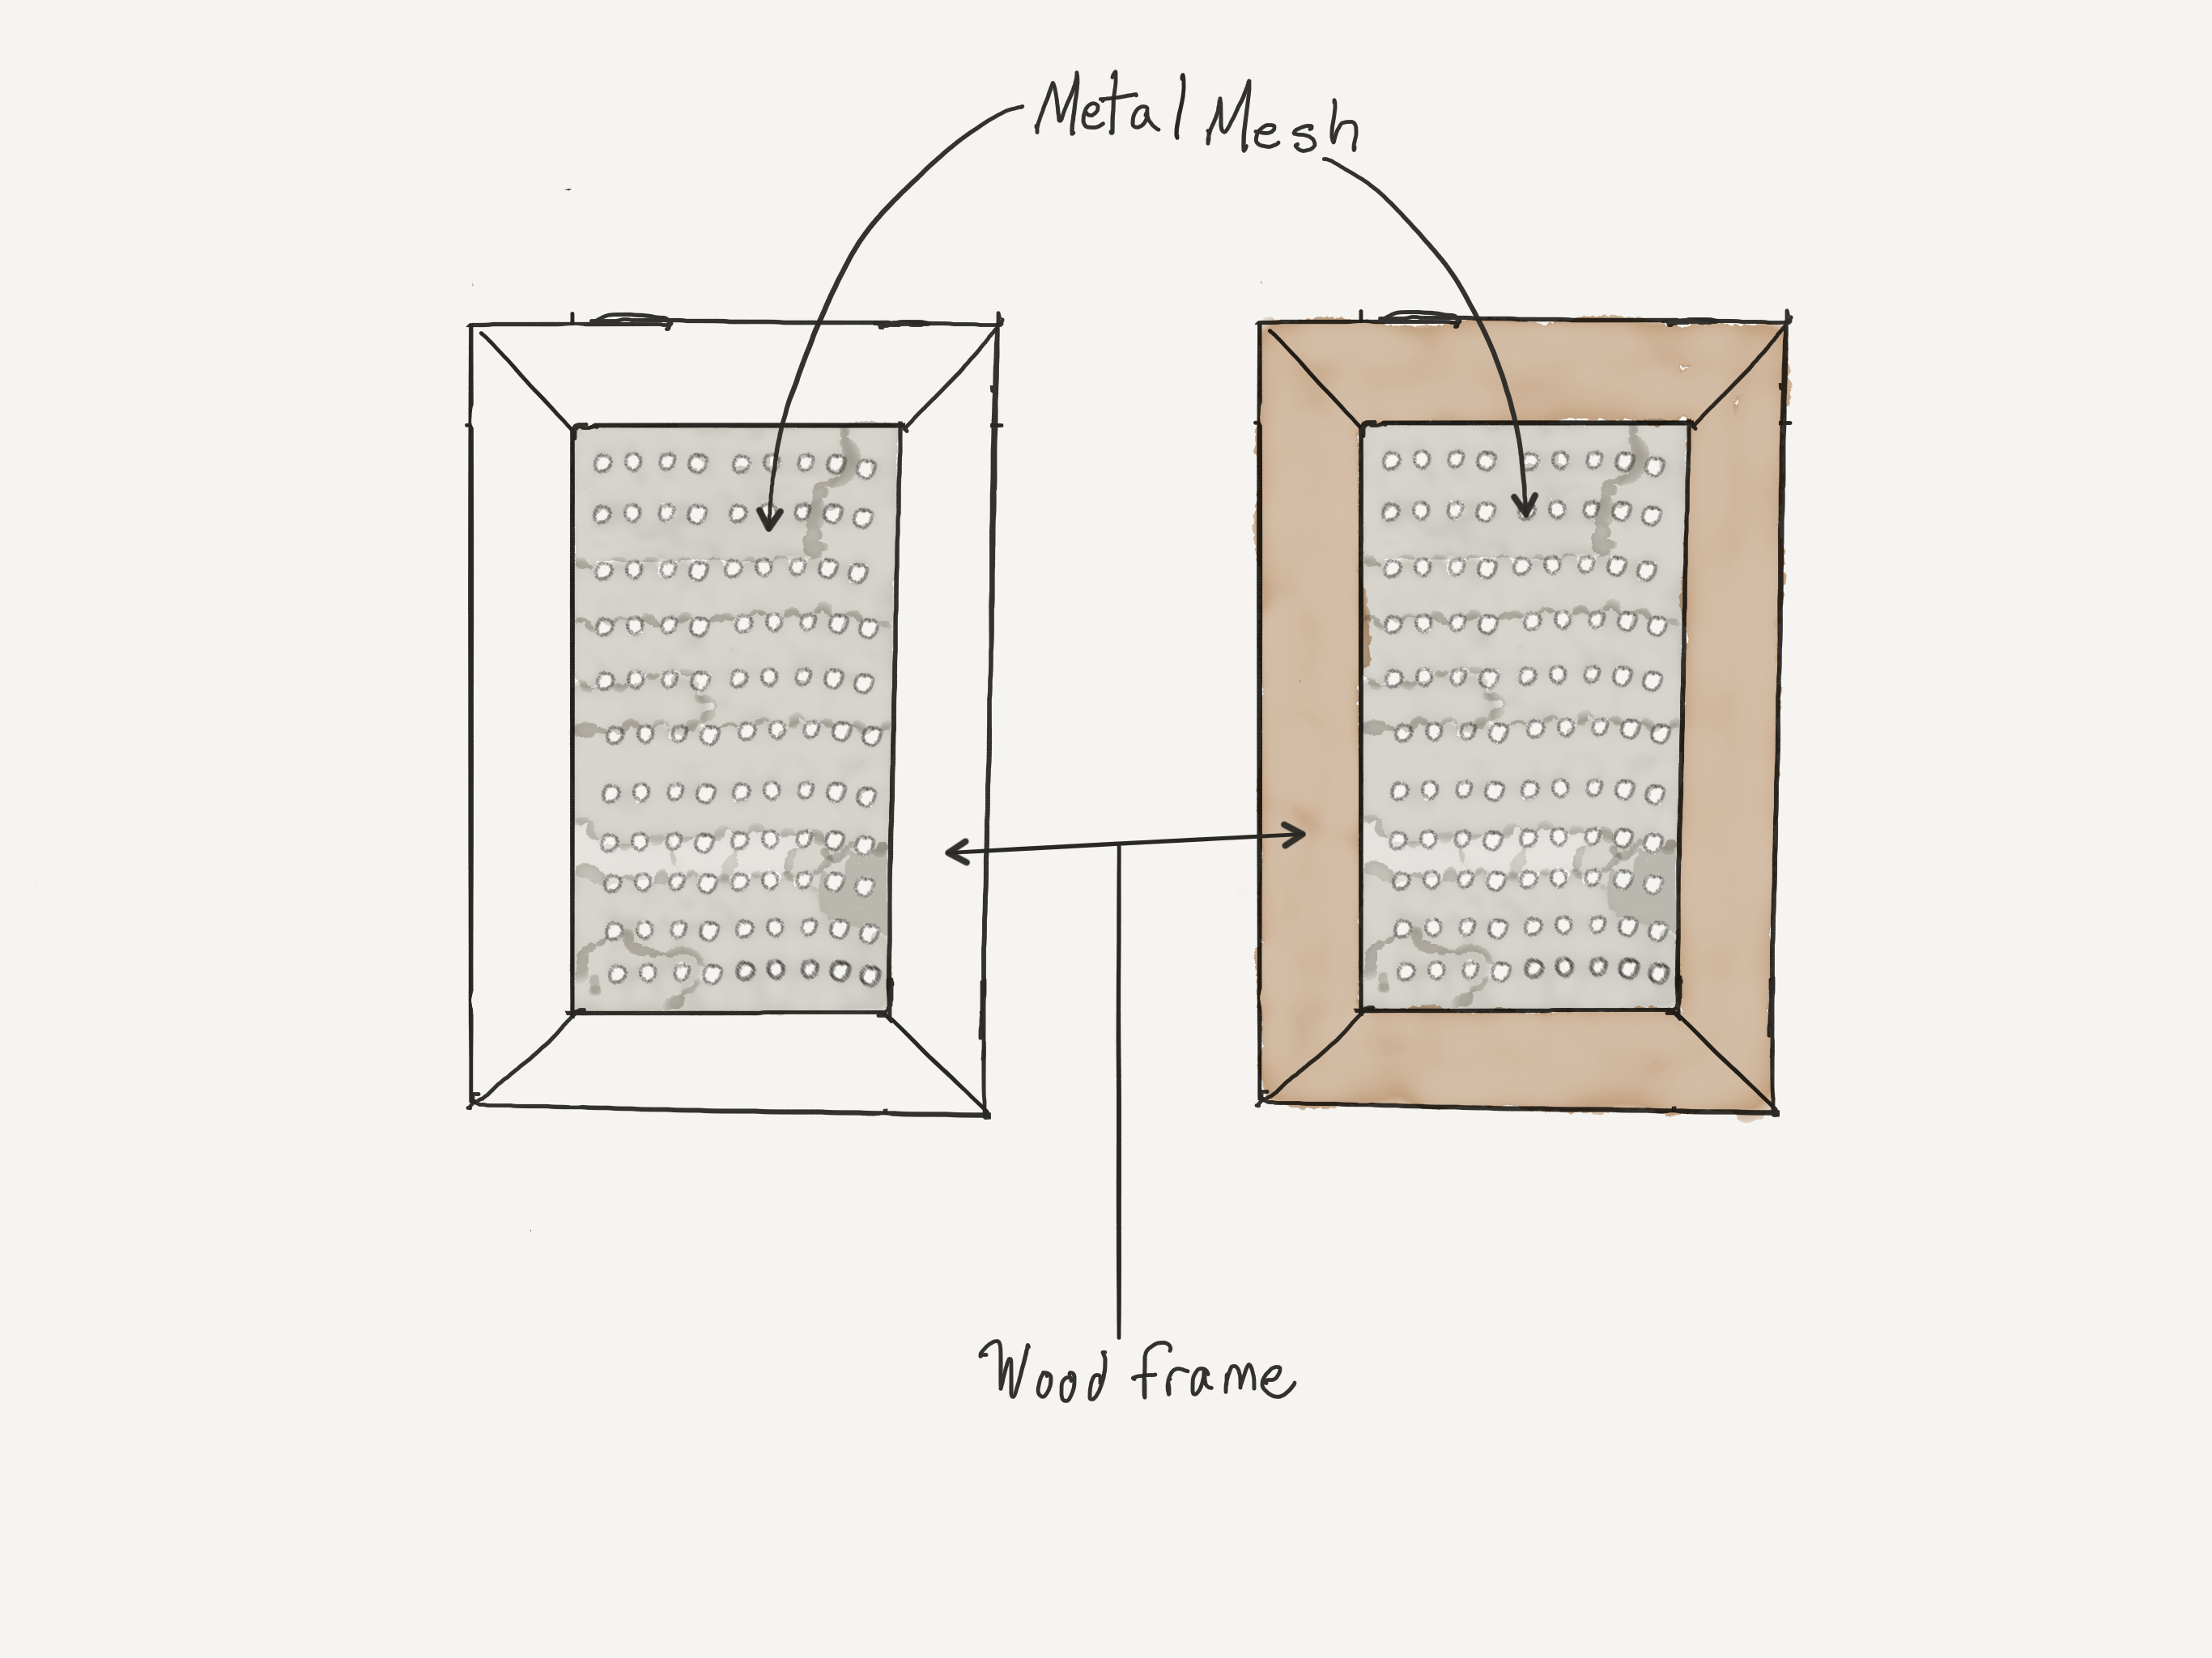 Metal Mesh
Wood frame